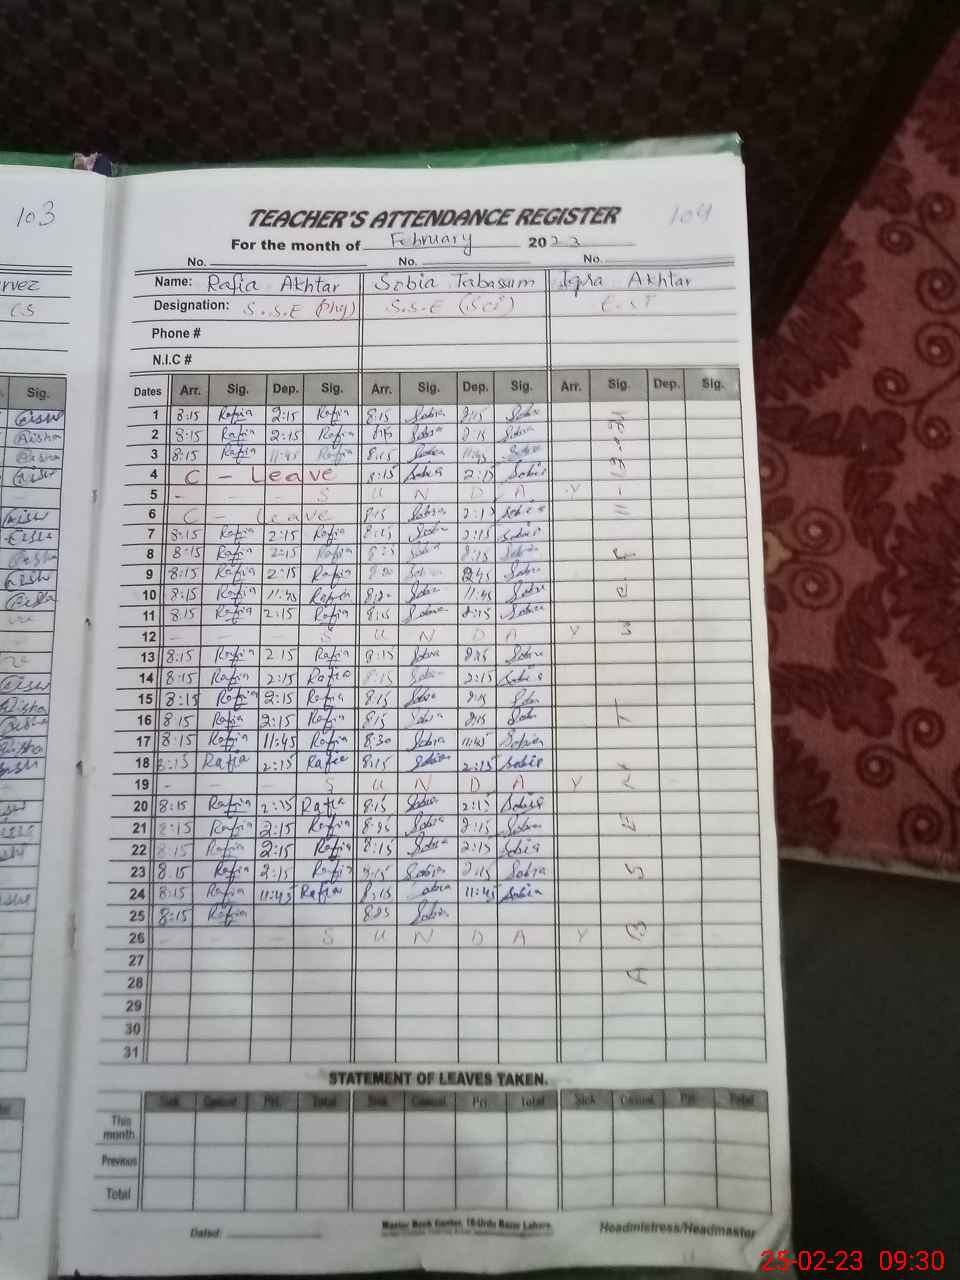 103
TEACHER'S ATTENDANCE REGISTER 104
For the month of February 2023
No. No. No.
rvez Name: Rafia Akhtar Sobia Tabassum Iqra Akhtar
Designation: S.S.E (Phy) S.S.E (Sci) E.ST
Phone #
N.I.C #
Sig. Dates Arr. Sig. Dep. Sig. Arr. Sig. Dep. Sig. Arr. Sig. Dep. Sig.
1 8:15 Rafia 2:15 Rafia 8:15 Sobia 2:15 Sobia
2 8:15 Rafia 2:15 Rafia 8:15 Sobia 2:15 Sobia
3 8:15 Rafia 11:45 Rafia 8:15 Sobia 11:45 Sobia
4 C - Leave 8:15 Sobia 2:15 Sobia
5 - - - S U N D A Y -
6 C - Leave 8:15 Sobia 2:15 Sobia
7 8:15 Rafia 2:15 Rafia 8:15 Sobia 2:15 Sobia
8 8:15 Rafia 2:15 Rafia Sobia 2:15 Sobia
9 8:15 Rafia 2:15 Rafia Sobia 2:45 Sobia
10 8:15 Rafia 11:45 Rafia 8:20 Sobia 11:45 Sobia
11 8:15 Rafia 2:15 Rafia 8:15 Sobia 2:15 Sobia
12 - - - S U N D A Y
13 8:15 Rafia 2:15 Rafia 8:15 Sobia 2:15 Sobia
14 8:15 Rafia 2:15 Rafia 8:15 Sobia 2:15 Sobia
15 8:15 Rafia 2:15 Rafia 8:15 Sobia 2:15 Sobia
16 8:15 Rafia 2:15 Rafia 8:15 Sobia 2:15 Sobia
17 8:15 Rafia 11:45 Rafia 8:30 Sobia 11:45 Sobia
18 8:15 Rafia 2:15 Rafia 8:15 Sobia 2:15 Sobia
19 - - - S U N D A Y
20 8:15 Rafia 2:15 Rafia 8:15 Sobia 2:15 Sobia
21 8:15 Rafia 2:15 Rafia 8:25 Sobia 2:15 Sobia
22 8:15 Rafia 2:15 Rafia 8:15 Sobia 2:15 Sobia
23 8:15 Rafia 2:15 Rafia 8:15 Sobia 2:15 Sobia
24 8:15 Rafia 11:45 Rafia 8:15 Sobia 11:45 Sobia
25 8:15 Rafia 8:25 Sobia
26 - - - S U N D A Y - -
27
28
29
30
31
STATEMENT OF LEAVES TAKEN.
Sick Casual Pri. Total Sick Casual Pri. Total Sick Casual Pri. Total
This month
Previous
Total
Dated: Master Book Center, 18-Urdu Bazar Lahore. Headmistress/Headmaster
25-02-23 09:30